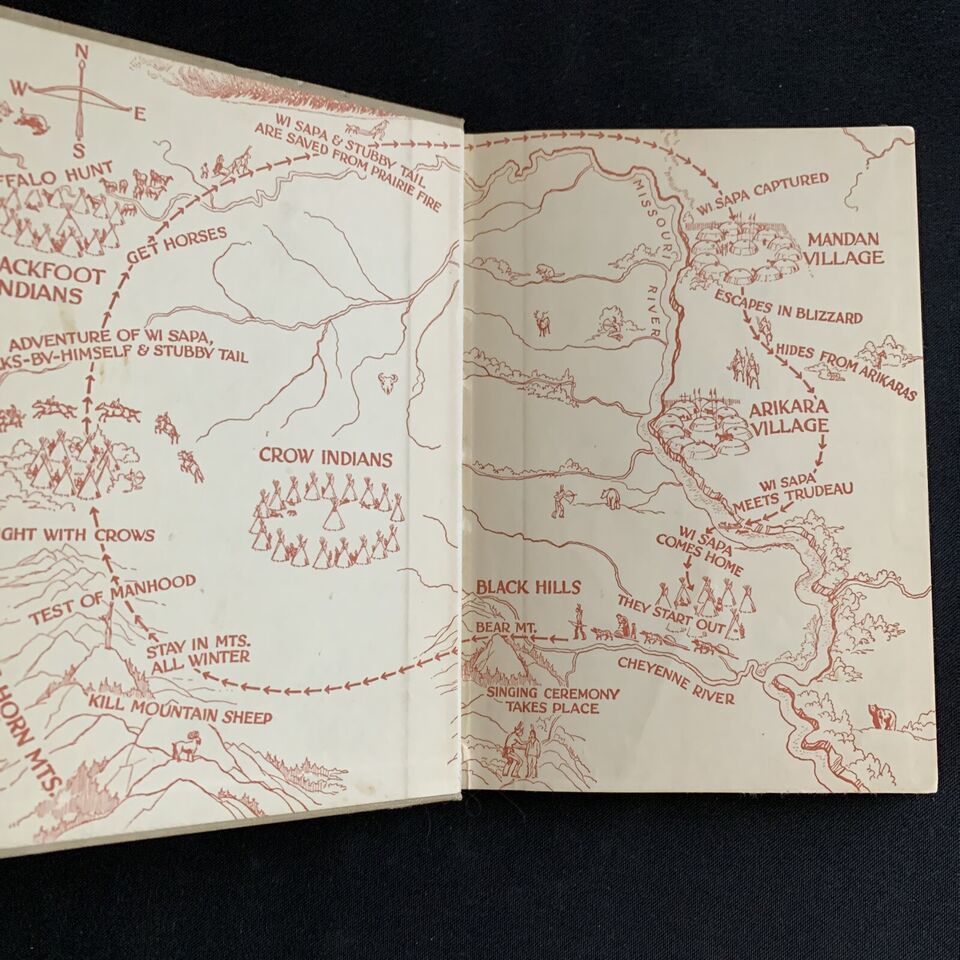 N
W
E
S
WI SAPA & STUBBY TAIL
ARE SAVED FROM PRAIRIE FIRE
FFALO HUNT
GET HORSES
ACKFOOT
NDIANS
ADVENTURE OF WI SAPA,
KS-BY-HIMSELF & STUBBY TAIL
CROW INDIANS
GHT WITH CROWS
TEST OF MANHOOD
STAY IN MTS.
ALL WINTER
KILL MOUNTAIN SHEEP
HORN MTS.
MISSOURI
RIVER
WI SAPA CAPTURED
MANDAN
VILLAGE
ESCAPES IN BLIZZARD
HIDES FROM ARIKARAS
ARIKARA
VILLAGE
WI SAPA
MEETS TRUDEAU
WI SAPA
COMES HOME
BLACK HILLS
THEY START OUT
BEAR MT.
CHEYENNE RIVER
SINGING CEREMONY
TAKES PLACE